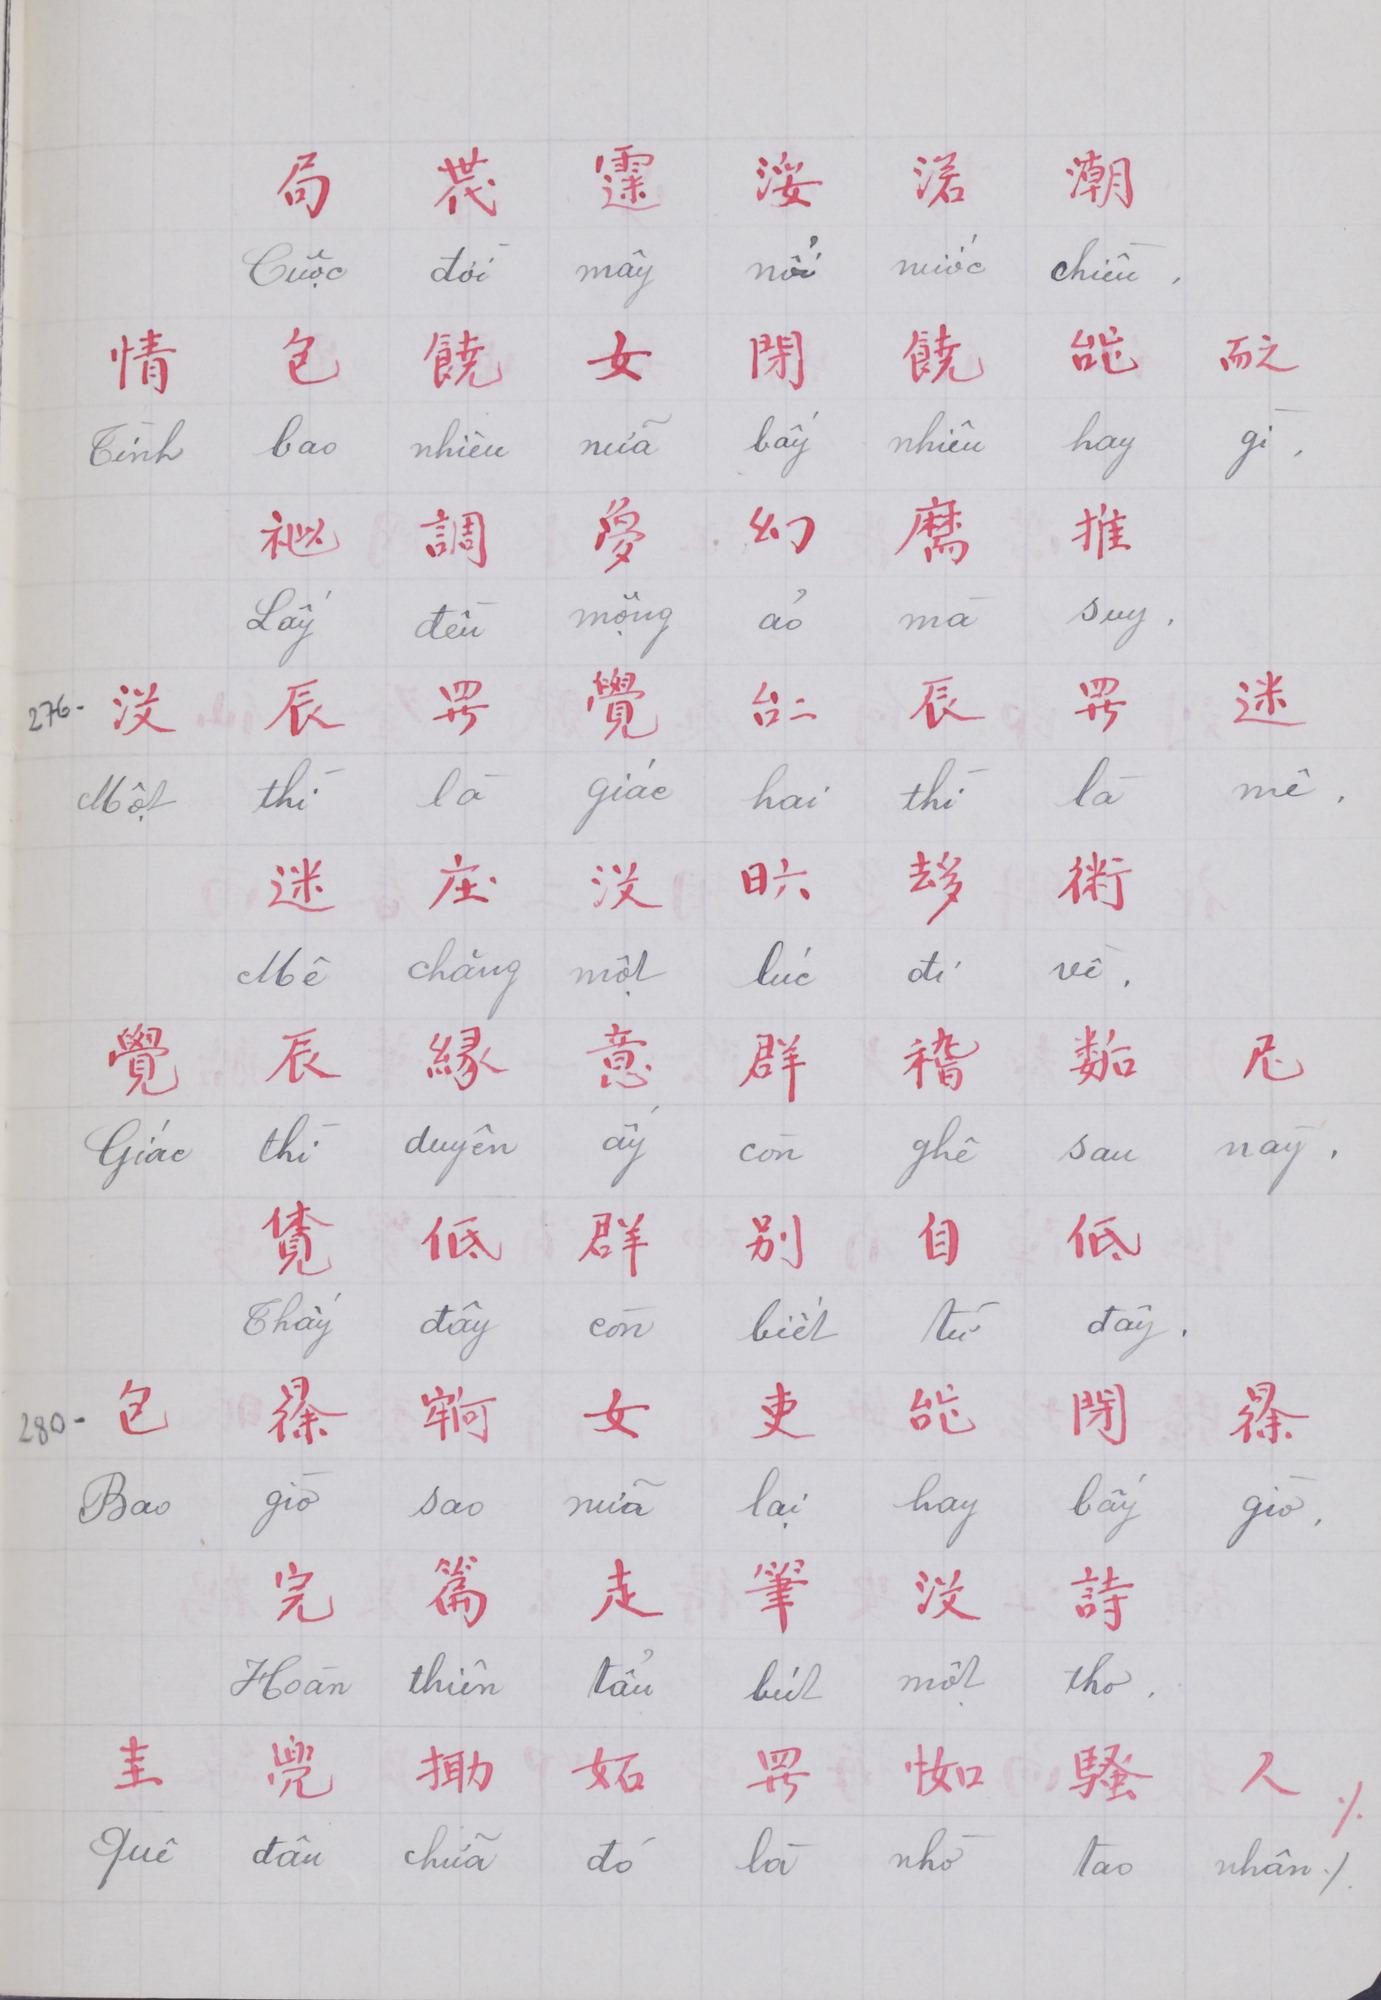 局 𠁀 䨘 浽 渃 潮
Cuộc đời mây nổi nước chiều,
情 包 饒 女 閉 饒 咍 之
Tình bao nhiêu nữa bấy nhiêu hay gì,
調 夢 幻 麿 推
Lấy đều mộng ảo mà suy,
276- 沒 辰 罢 覺 𠄩 辰 罢 迷
Một thì là giác hai thì là mê,
迷 庄 沒 𣅶 𠫾 術
Mê chăng một lúc đi về,
覺 辰 緣 意 群 稽 𡢐 尼
Giác thì duyên ấy còn ghê sau này,
覽 低 群 別 自 低
Thấy đây còn biết từ đây,
280- 包 𣇞 牢 女 吏 咍 閉 𣇞
Bao giờ sao nữa lại hay bấy giờ,
完 篇 走 筆 沒 詩
Hoàn thiên tẩu bút một thơ,
圭 兜 妬 罢 洳 騷 人 ⁒
Quê đâu chữa đó là nhờ tao nhân ⁒